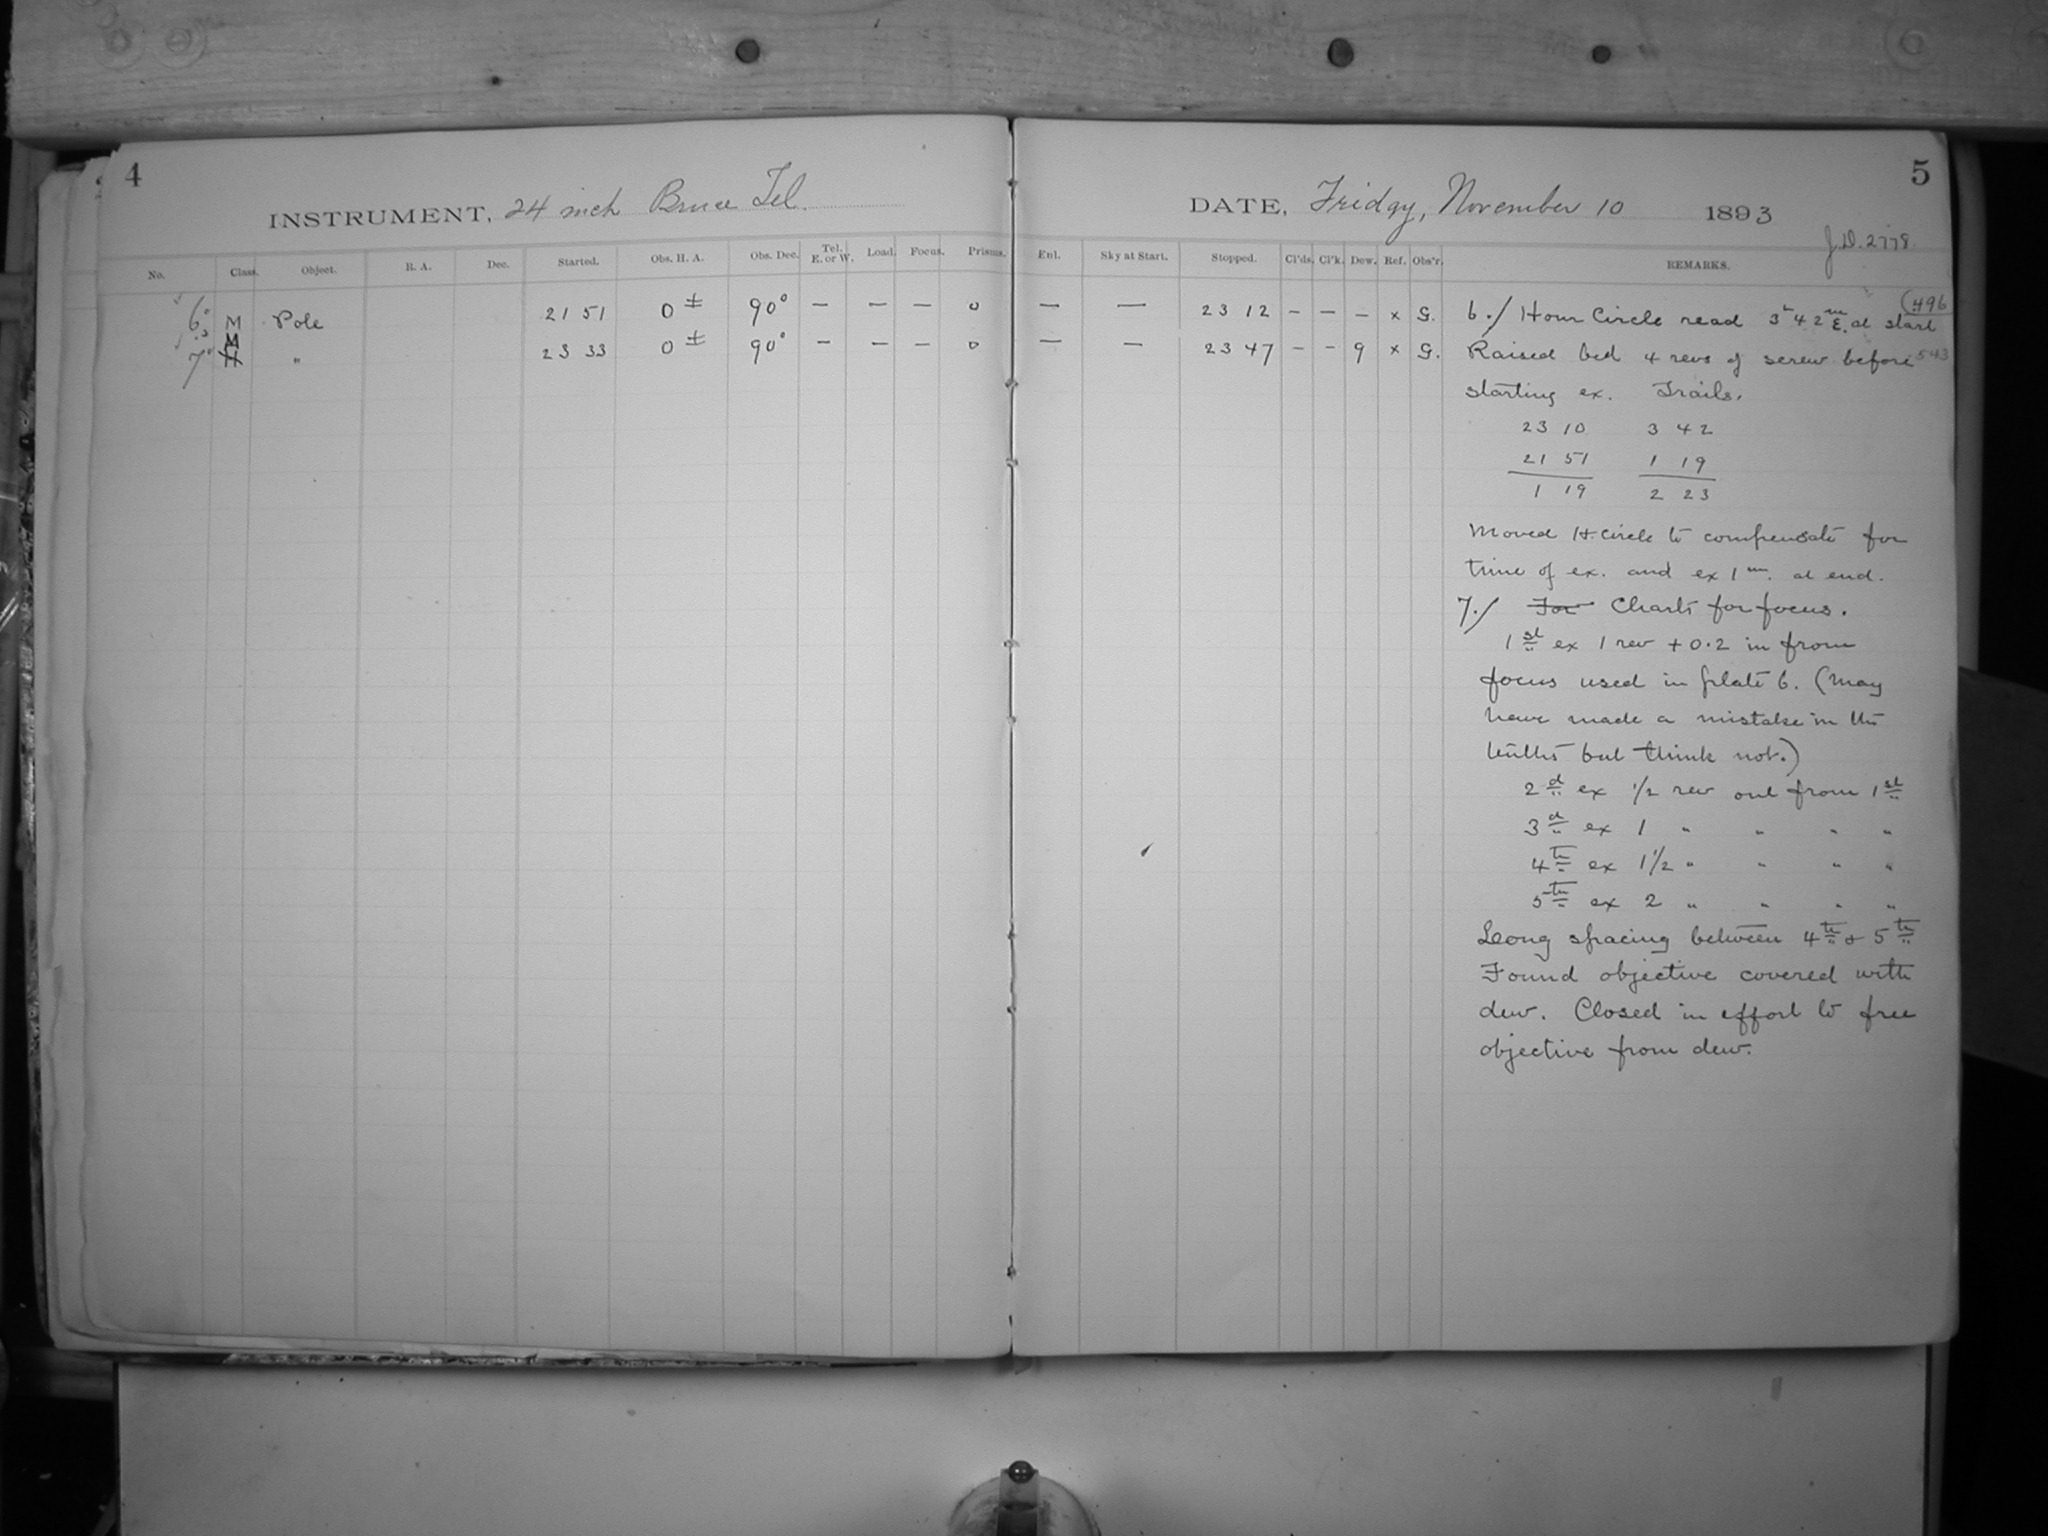 4
INSTRUMENT, 24 inch Bruce Tel.
No. Class. Object. R. A. Dec. Started. Obs. H. A. Obs. Dec. Tel. E. or W. Load. Focus. Prisms.
6 M Pole 21 51 0 ± 90° — — — 0
7 M H " 23 33 0 ± 90° — — — 0
5
DATE, Friday, November 10 1893
J.D. 2778.
Enl. Sky at Start. Stopped. Cl'ds. Cl'k. Dew. Ref. Obs'r. REMARKS.
— — 23 12 – – – x G. 6./ Hour Circle read 3h 42m E. at start (.496
— — 23 47 – – 9 x G. Raised bed 4 revs of screw before .543
starting ex. Trails.
23 10 3 42
21 51 1 19
1 19 2 23
Moved H. circle to compensate for
time of ex. and ex 1m. at end.
7./ For Charts for focus.
1st ex 1 rev + 0.2 in from
focus used in plate 6. (May
have made a mistake in the
tenths but think not.)
2d ex 1/2 rev out from 1st
3d ex 1 " " " "
4th ex 1 1/2 " " " "
5th ex 2 " " " "
Long spacing between 4th & 5th
Found objective covered with
dew. Closed in effort to free
objective from dew.